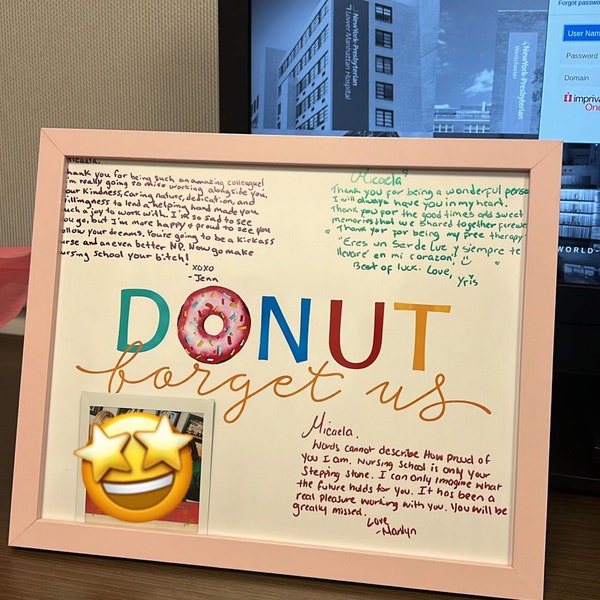 NewYork-Presbyterian
Lower Manhattan Hospital
NewYork-Presbyterian
Westchester
Forgot passwo
User Nam
Password
Domain
impriva
One
WORLD-
icaela.
hank you for being such an amazing colleague!
m really going to miss working alongside you.
our Kindness, caring nature, dedication, and
illingness to lend a helping hand made you
uch a joy to work with. I'm so sad to see
ou go, but I'm more happy & proud to see you
ollow your dreams. You're going to be a kickass
urse and an even better NP. Now go make
ursing school your bitch!
xoxo
-Jenn
Micaela
Thank you for being a wonderful perso
I will always have you in my heart.
Thank you for the good times and sweet
memories that we shared together forever
Thank you for being my free therapy
"Eres un Ser de Luz y siempre te
llevaré en mi corazon."
Best of luck. Love,
Yris
DONUT
forget us
Micaela.
Words cannot describe How Proud of
you I am. Nursing School is only your
Stepping stone. I can only imagine what
the future holds for you. It has been a
real pleasure working with you. You will be
greatly missed.
Love
-Marilyn